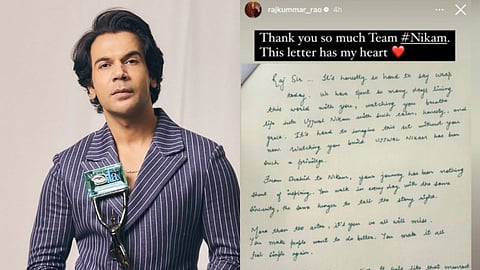 rajkummar_rao 4h
Thank you so much Team #Nikam.
This letter has my heart ❤️
Raj Sir... It's honestly so hard to say wrap
today. We have spent so many days living
this world with you, watching you breathe
life into Ujjwal Nikam with such calm, honesty, and
grace. It's hard to imagine this set without you
now. Watching you build UJJWAL NIKAM has been
such a privilege.
From Shahid to Nikam, your journey has been nothing
short of inspiring. You walk in every day with the same
sincerity, the same hunger to tell the story right.
More than the actor, it's you we all will miss.
You make people want to do better. You make it all
feel simple again.
like that moment